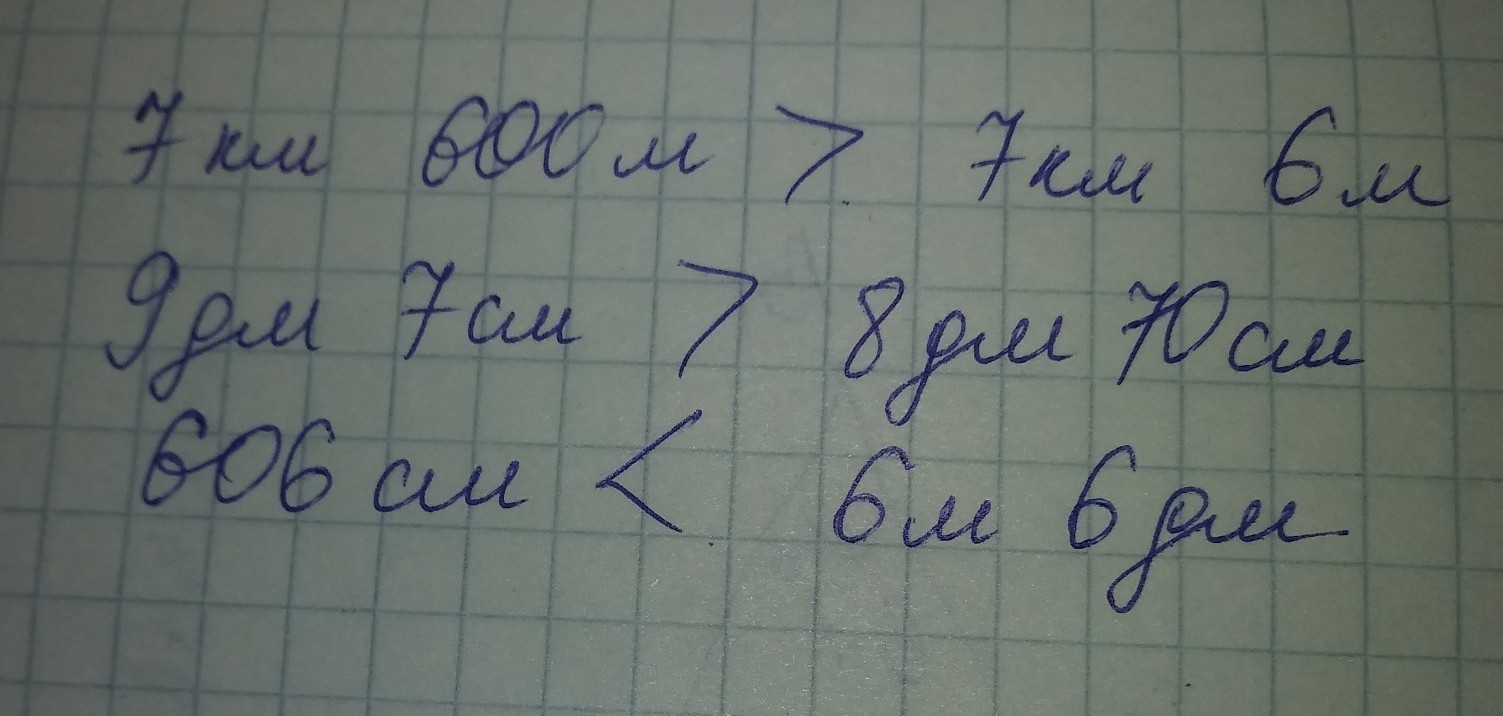 7 км 600 м > 7 км 6 м
9 дм 7 см > 8 дм 70 см
606 см < 6 м 6 дм